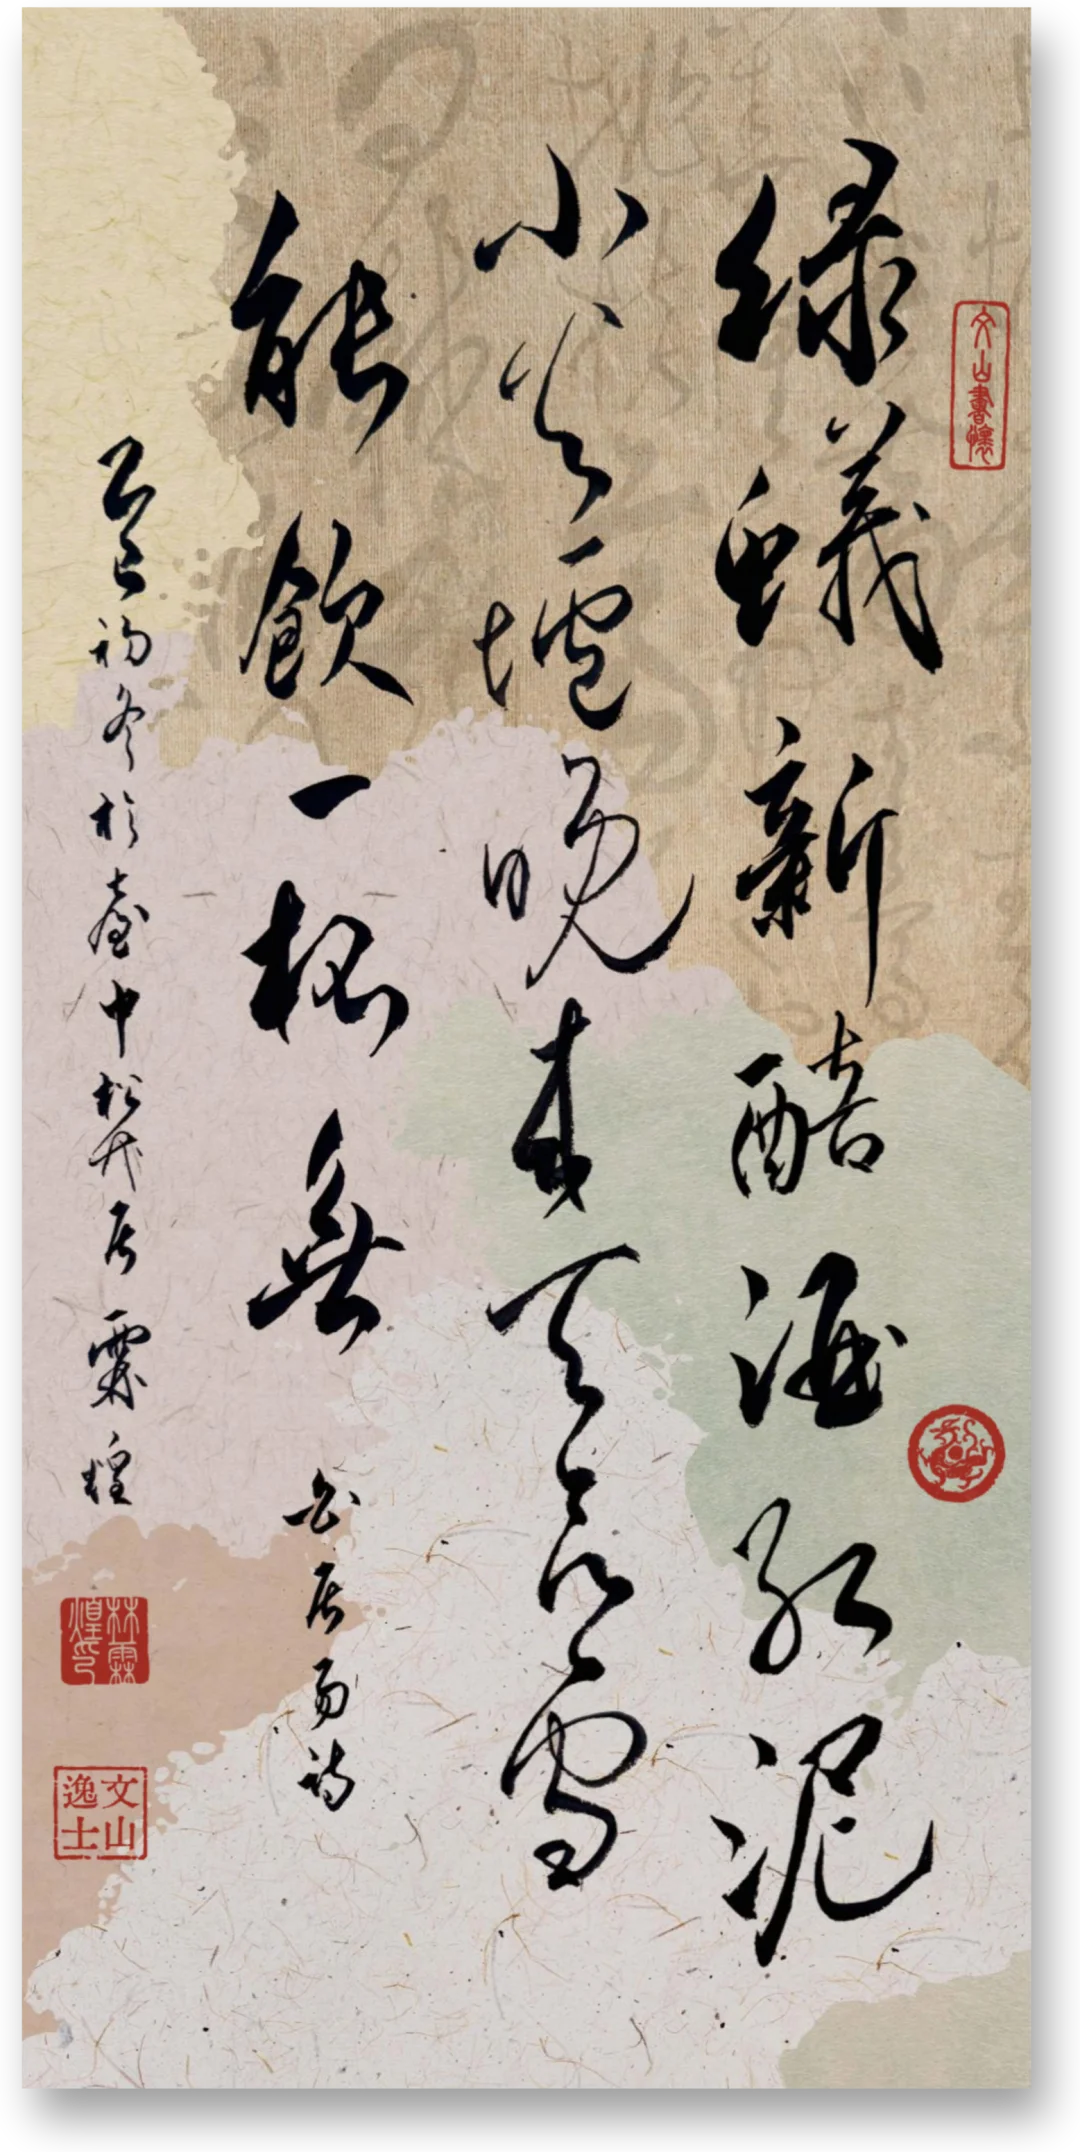 文山書懷
綠蟻新醅酒紅泥
小火壚晚來天欲雪
能飲一桮無
白居易詩
乙巳初冬於臺中松茂居霖煌
林霖煌印
文山逸士